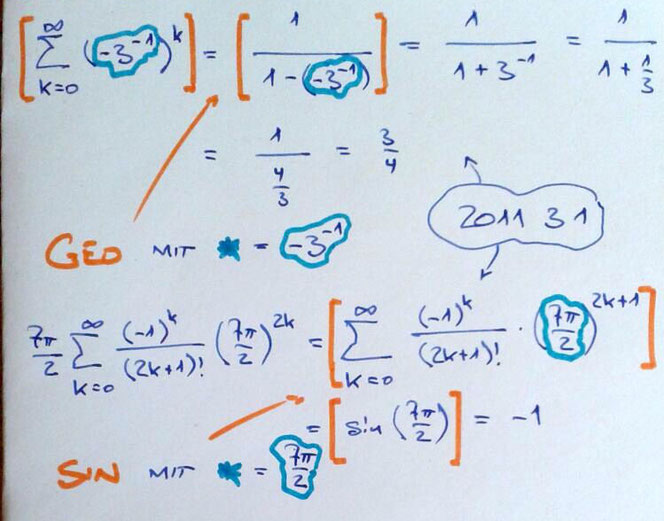 [∑_{k=0}^{∞} (-3⁻¹)^k] = [1/(1-(-3⁻¹))] = 1/(1+3⁻¹) = 1/(1+1/3)
= 1/(4/3) = 3/4
2011 31
GEO MIT * = -3⁻¹
7π/2 ∑_{k=0}^{∞} (-1)^k/(2k+1)! (7π/2)^{2k} = [∑_{k=0}^{∞} (-1)^k/(2k+1)! · (7π/2)^{2k+1}]
= [sin(7π/2)] = -1
SIN MIT * = 7π/2